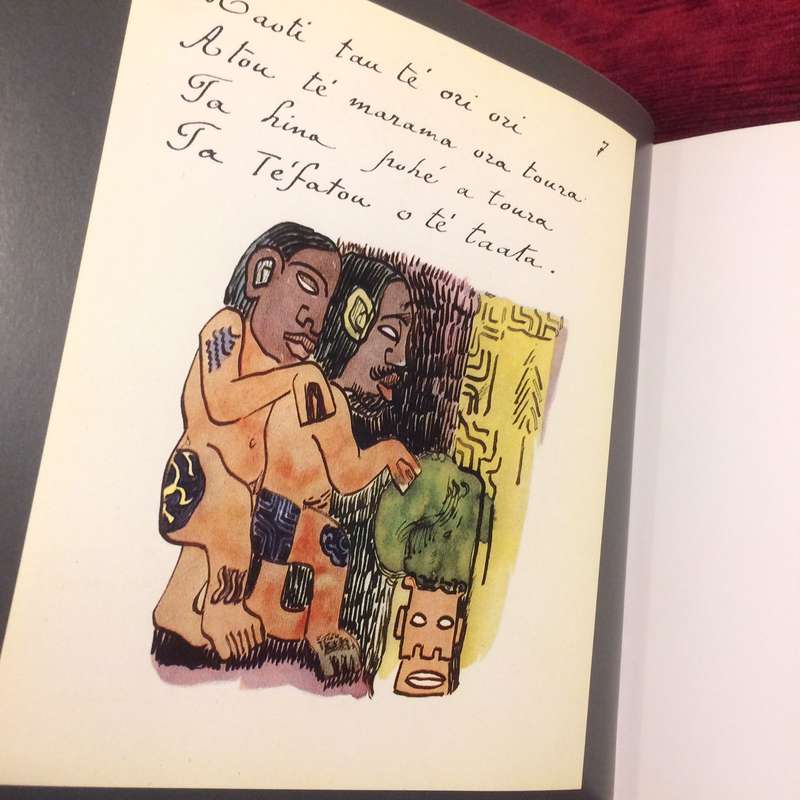 Naoti tau té ori ori
Atou té marama ora toura.
Ta hina pohé a toura
Ta Téfatou o té taata.
7